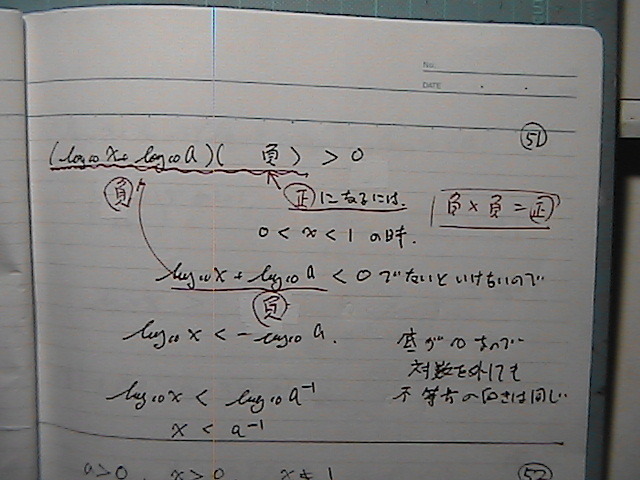 No.
DATE . .
51
(log₁₀x + log₁₀a)( 負 ) > 0
負
正になるには.
負×負=正
0 < x < 1 の時.
log₁₀x + log₁₀a < 0 でないといけないので
負
log₁₀x < -log₁₀a.
底が10なので
対数を外しても
log₁₀x < log₁₀a⁻¹
不等号の向きは同じ.
x < a⁻¹
a>0 . x>0 x≠1
52